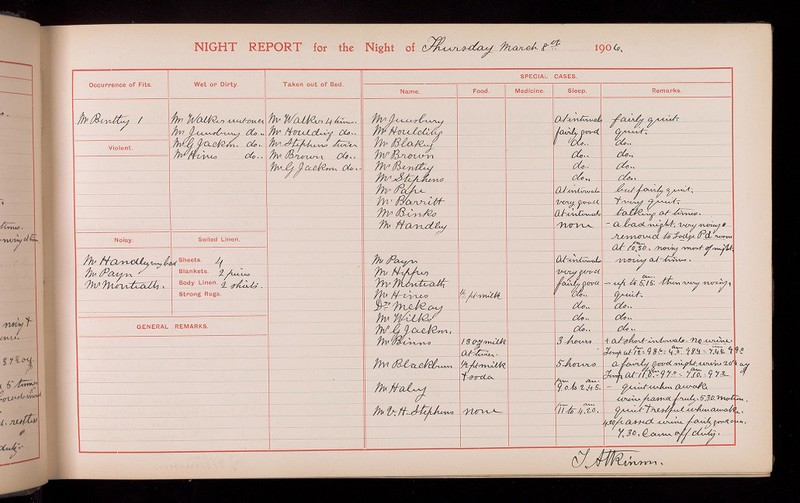 NIGHT REPORT for the Night of Thursday March 8th 1906.
SPECIAL CASES.
Occurrence of Fits.
Wet or Dirty.
Taken out of Bed.
Name.
Food.
Medicine.
Sleep.
Remarks.
Mr Bentley 1
Violent.
Noisy.
Mr Handley very bad
Mr Payn
Mr Montieath.
GENERAL REMARKS.
Mr Walker wet once
Mr Jewsbury do..
Mr G Jackson. do..
Mr Hines do..
Soiled Linen.
Sheets. 4
Blankets. 2 pieces
Body Linen. 2 shirts.
Strong Rugs.
Mr Walker 4 times.
Mr Houlding do..
Mr Stephens twice
Mr Brown do..
Mr G Jackson. do..
Mr Jewsbury At intervals fairly quiet.
Mr Houlding fairly good quiet.
Mr Blakey do.. do..
Mr Brown do.. do..
Mr Bentley do.. do..
Mr Stephens do.. do..
Mr Pape At intervals but fairly quiet.
Mr Barritt very good & very quiet.
Mr Binks At intervals talking at times.
Mr Handley none - a bad night, very noisy &
removed to Lodge Pd room
at 10.30. noisy most of night.
Mr Payn At intervals noisy at times.
Mr Hipkes very good
Mr Montieath fairly good - up to 5.15 am. then very noisy.
Mr Hines ½ pt milk do.. quiet.
Dr McKay do.. do..
Mr Wilks do.. do..
Mr G Jackson. do.. do..
Mr Binns 18 oz milk 3 hours & at short intervals. no urine
at times.
Mr Blackburn ½ pt milk 5 hours a fairly good night. urine 20 oz
& soda
Mr Haley 9 pm. to 2.45 am. - quiet when awake
urine passed freely. 5.30 motion.
Mr V. H. Stephens none 11 pm to 4.20 am. quiet & restful when awake.
4.20 passed urine fairly good am.
7.30. Came off duty.
J Atkinson.